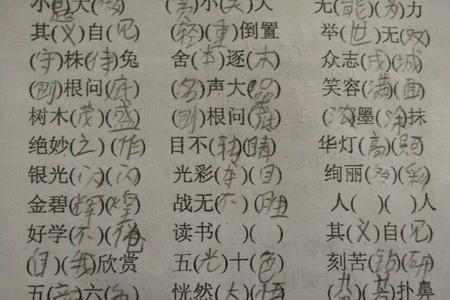 小( )大( ) ( )小( )大 无(能)(为)力
其(义)自(见) (轻)(重)倒置 举(世)无(双)
(守)株(待)兔 舍(本)逐(末) 众志(成)(城)
(刨)根问(底) (名)声大( ) 笑容(满)(面)
树木(茂)(盛) (刨)根问( ) (浓)墨(涂)抹
绝妙(之)(作) 目不(转)(睛) 华灯(高)( )
银光(闪)(闪) 光彩(夺)(目) 绚丽(多)(彩)
金碧(辉)(煌) 战无(不)(胜) 人( )( )人
好学(不)(倦) 读书( )( ) 其(义)自(见)
(自)(我)欣赏 五(光)十(色) 刻苦(钻)(研)
五(颜)六(色) 恍然(大)(悟) ( )( )扑鼻